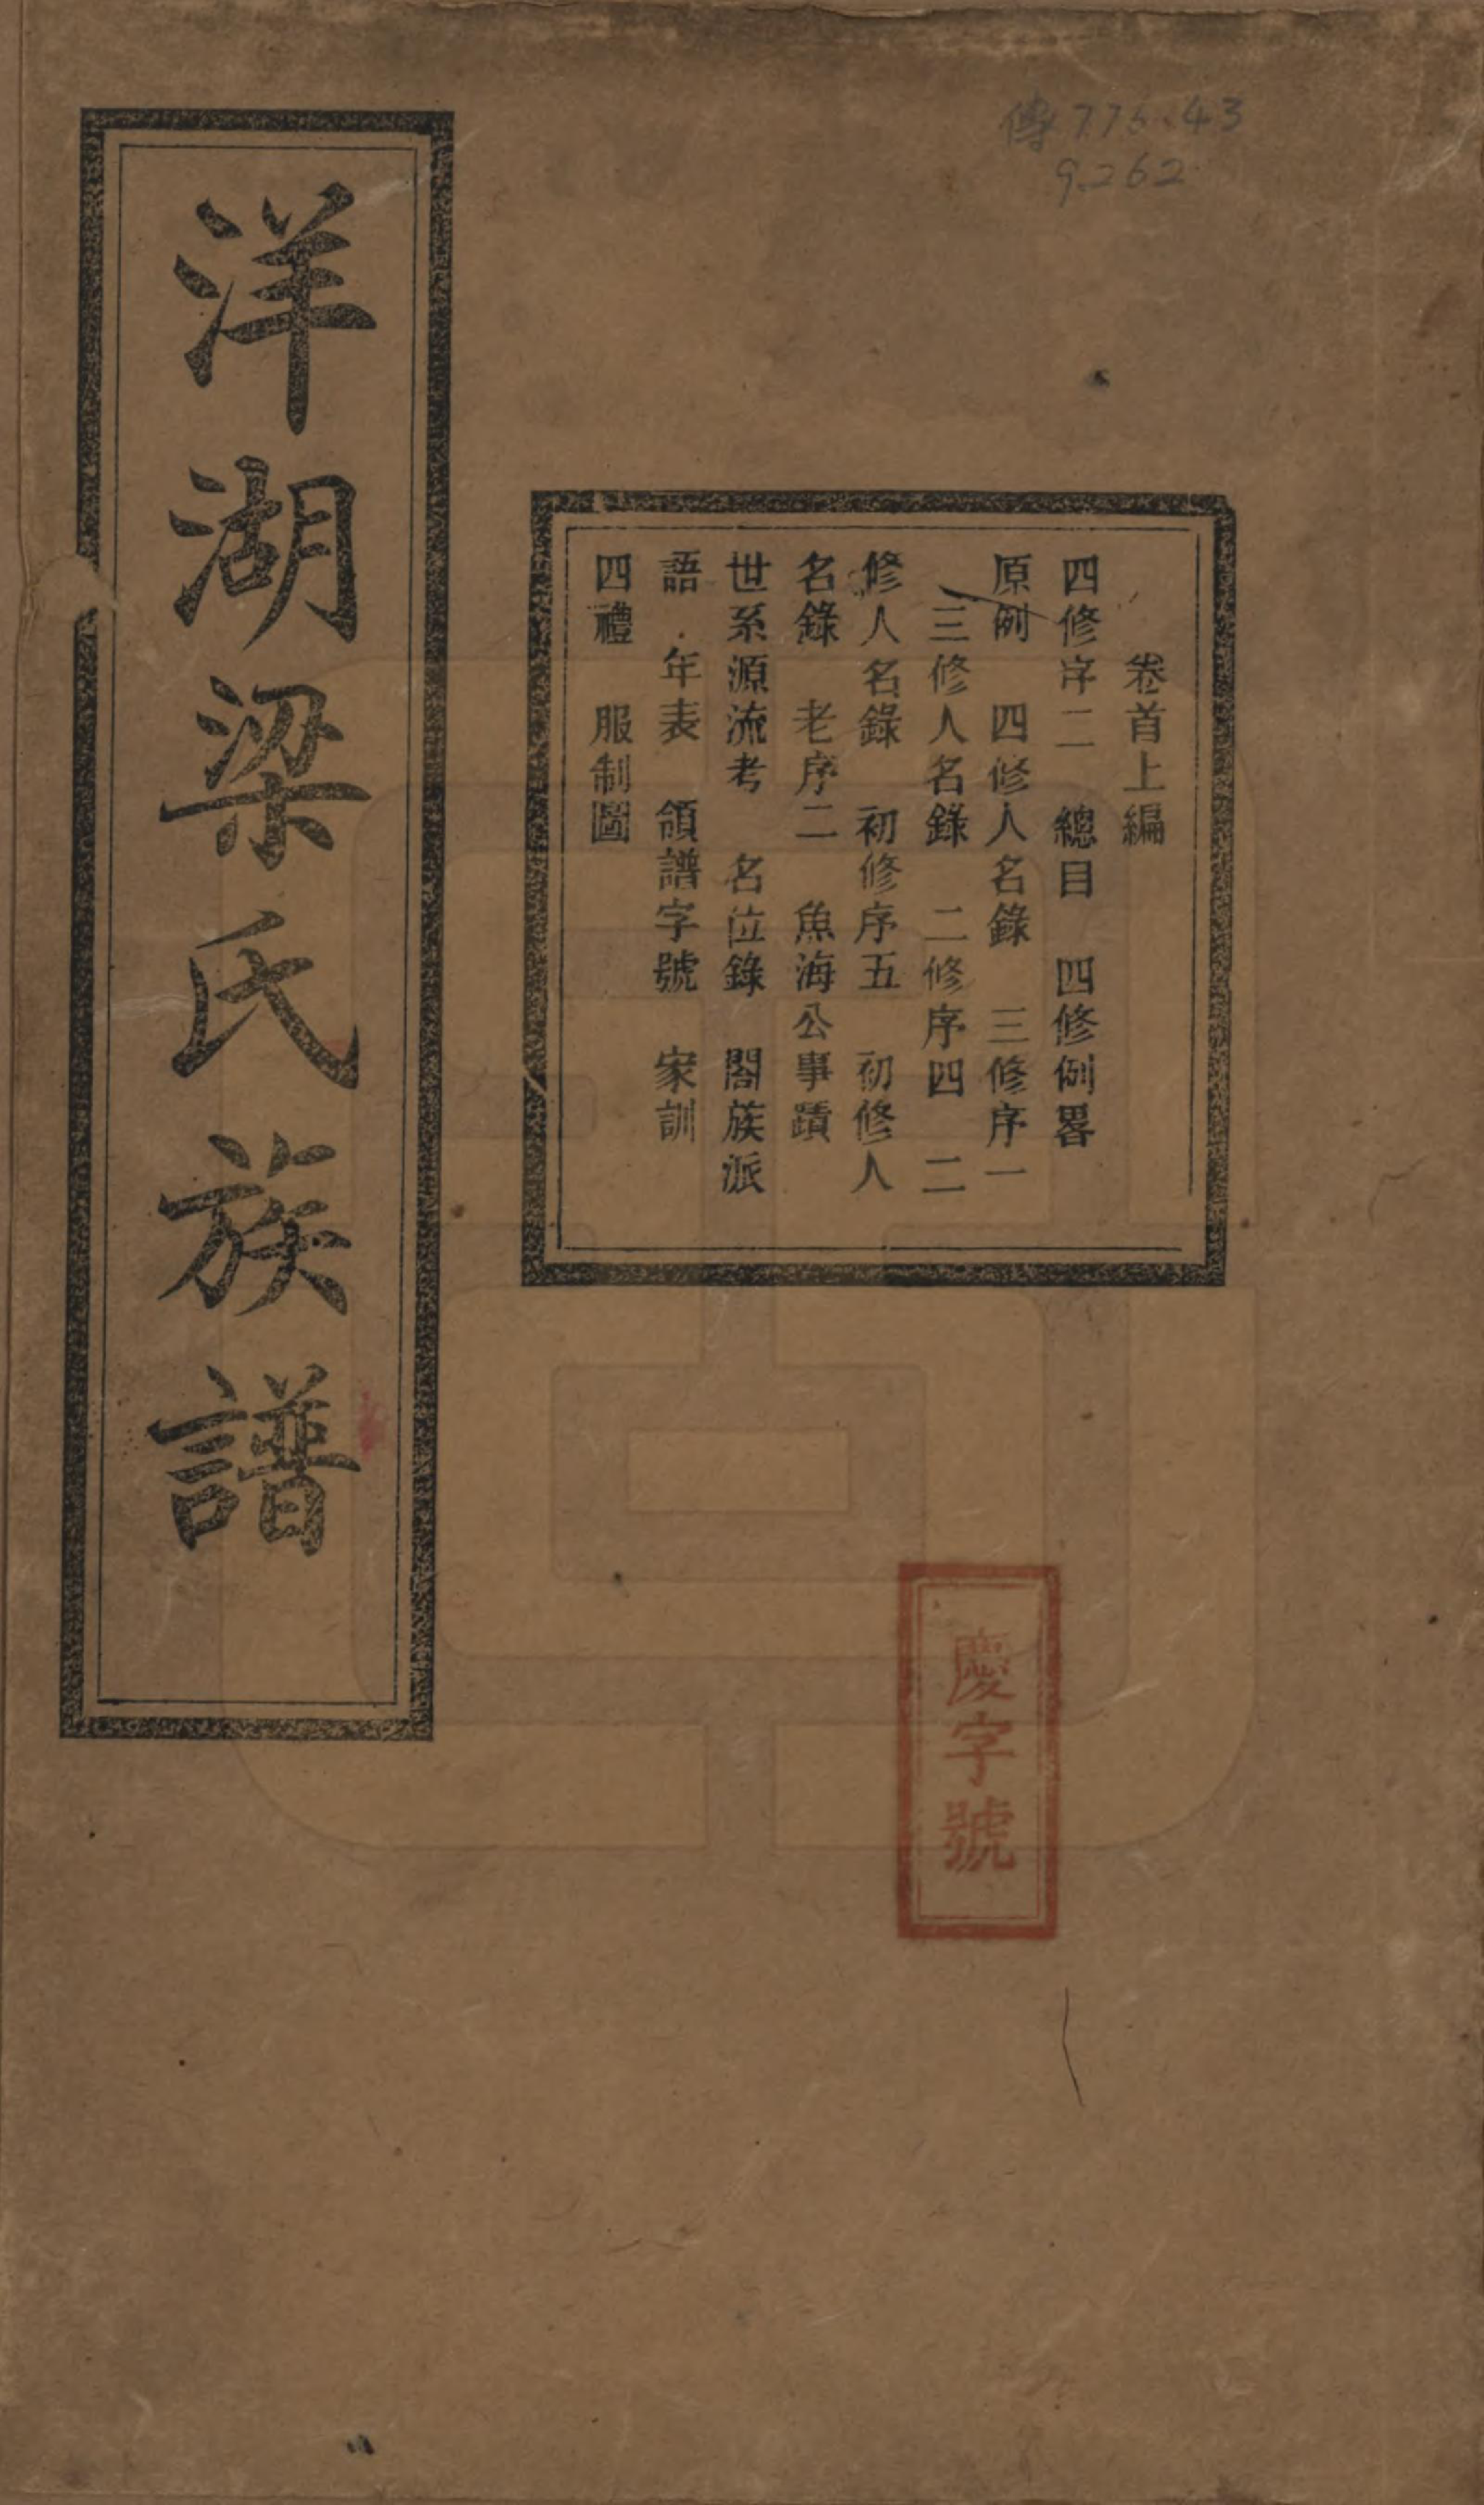 傳776.43
9262
卷首上編
四修序二　總目　四修例畧
原例　四修人名錄　三修序一
三修人名錄　二修序四　二
修人名錄　初修序五　初修人
名錄　老序二　魚海公事蹟
世系源流考　名位錄　閤族派
語　年表　領譜字號　家訓
四禮　服制圖
洋湖梁氏族譜
慶字號